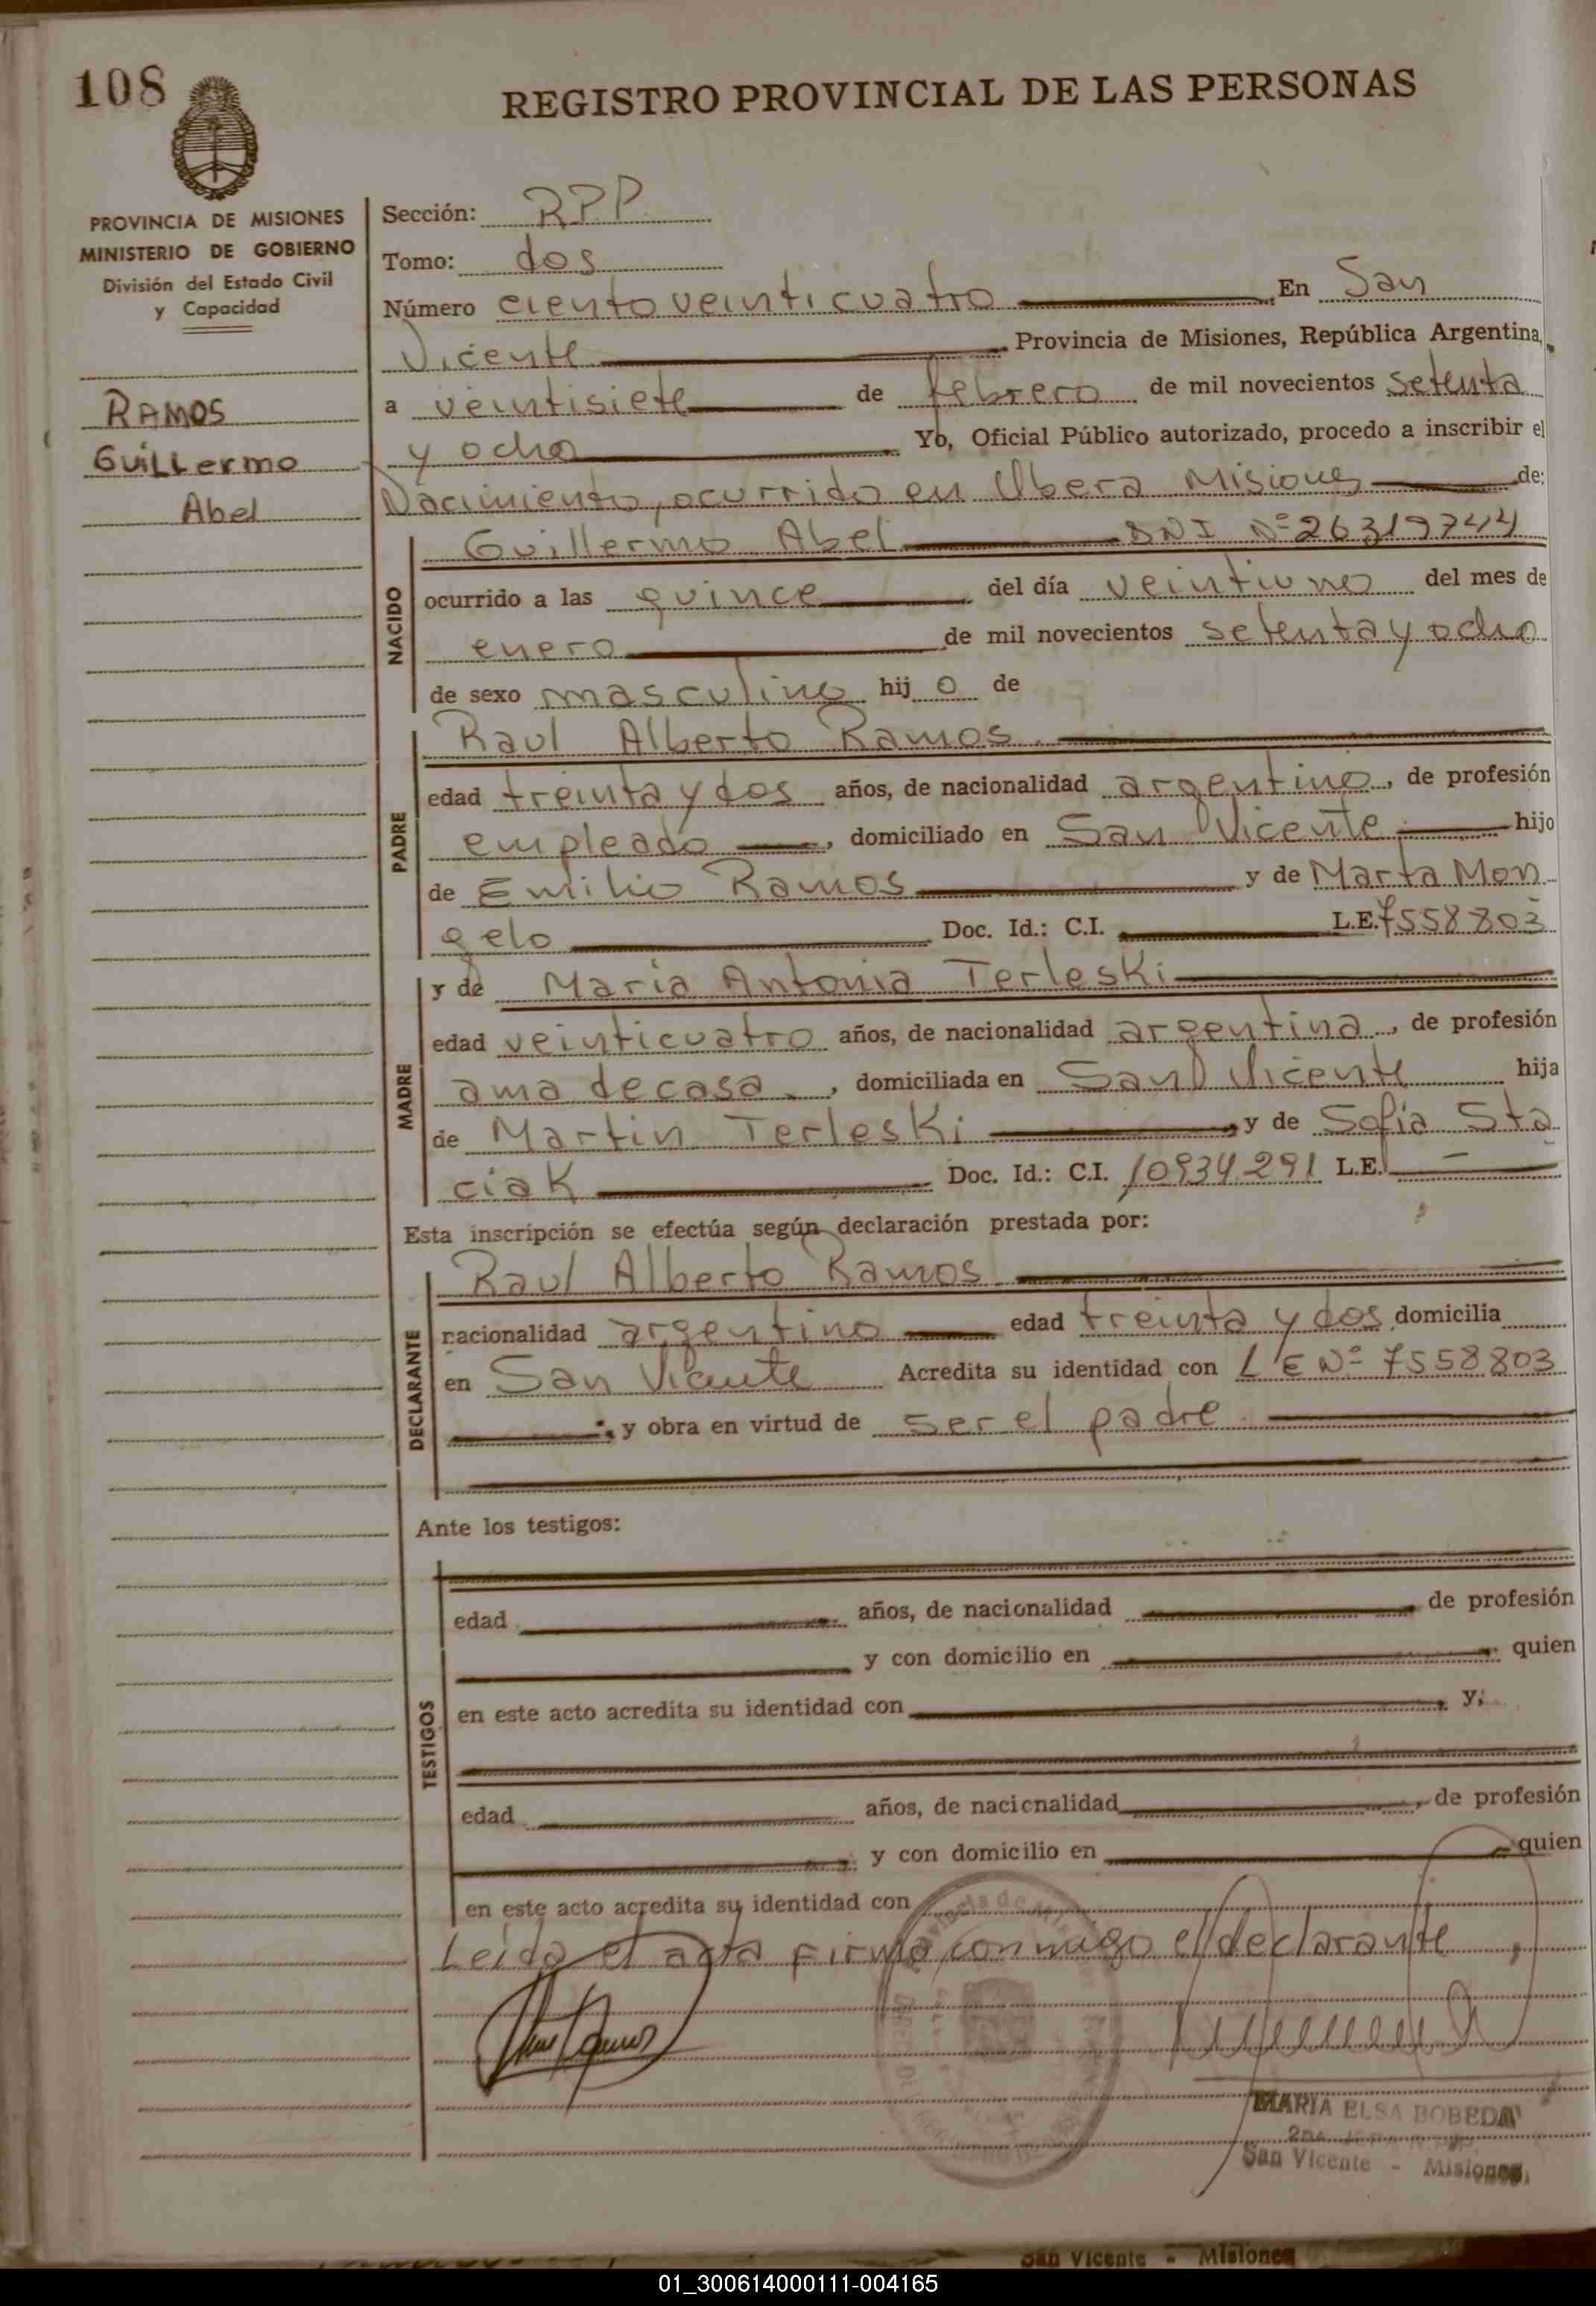 108
REGISTRO PROVINCIAL DE LAS PERSONAS
PROVINCIA DE MISIONES
MINISTERIO DE GOBIERNO
División del Estado Civil
y Capacidad
RAMOS
Guillermo
Abel
Sección: RPP
Tomo: dos
Número ciento veinticuatro En San
Vicente Provincia de Misiones, República Argentina,
a veintisiete de febrero de mil novecientos setenta
y ocho Yo, Oficial Público autorizado, procedo a inscribir el
Nacimiento, ocurrido en Obera Misiones de:
NACIDO
Guillermo Abel DNI Nº 26319744
ocurrido a las quince del día veintiuno del mes de
enero de mil novecientos setenta y ocho
de sexo masculino hij o de
PADRE
Raul Alberto Ramos
edad treinta y dos años, de nacionalidad argentino, de profesión
empleado, domiciliado en San Vicente hijo
de Emilio Ramos y de Marta Mon
gelo Doc. Id.: C.I. L.E. 7558803
MADRE
y de Maria Antonia Terleski
edad veinticuatro años, de nacionalidad argentina, de profesión
ama de casa, domiciliada en San Vicente hija
de Martin Terleski y de Sofia Sta
ciak Doc. Id.: C.I. 10934291 L.E. —
Esta inscripción se efectúa según declaración prestada por:
DECLARANTE
Raul Alberto Ramos
nacionalidad argentino edad treinta y dos domicilia
en San Vicente Acredita su identidad con L E Nº 7558803
; y obra en virtud de ser el padre
Ante los testigos:
TESTIGOS
edad años, de nacionalidad de profesión
y con domicilio en quien
en este acto acredita su identidad con y:
edad años, de nacionalidad de profesión
y con domicilio en quien
en este acto acredita su identidad con
Leida el acta firma conmigo el declarante
MARIA ELSA BOBEDA
San Vicente - Misiones
San Vicente - Misiones
01_300614000111-004165